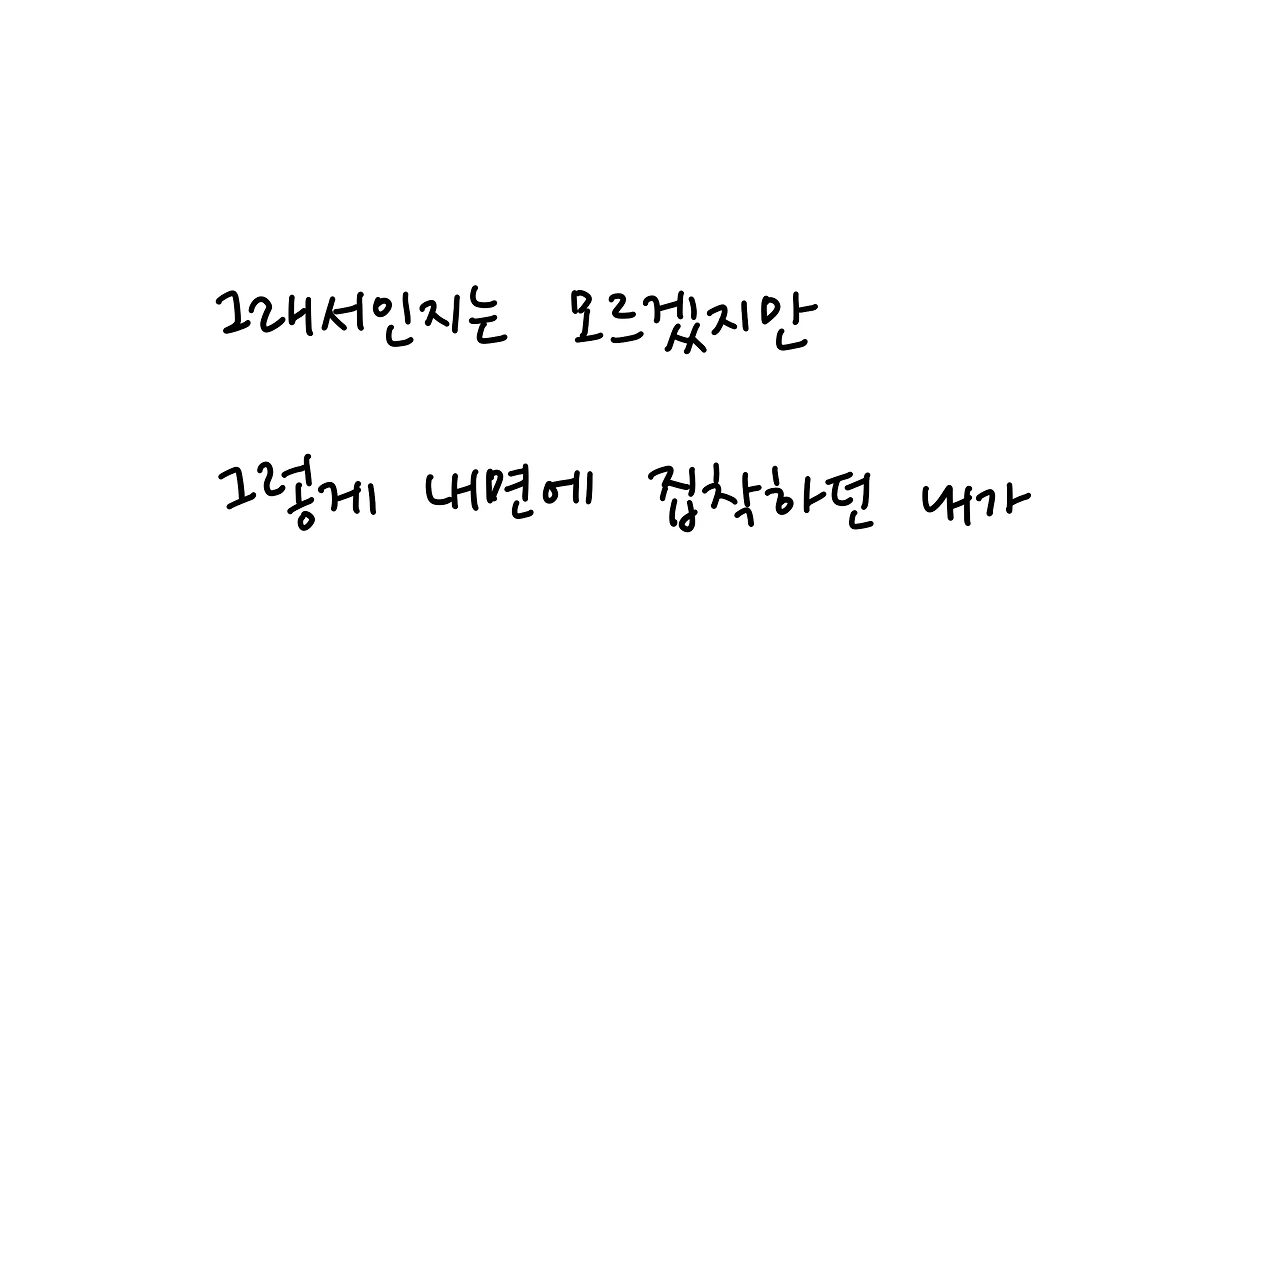 그래서인지는 모르겠지만
그렇게 내면에 집착하던 내가